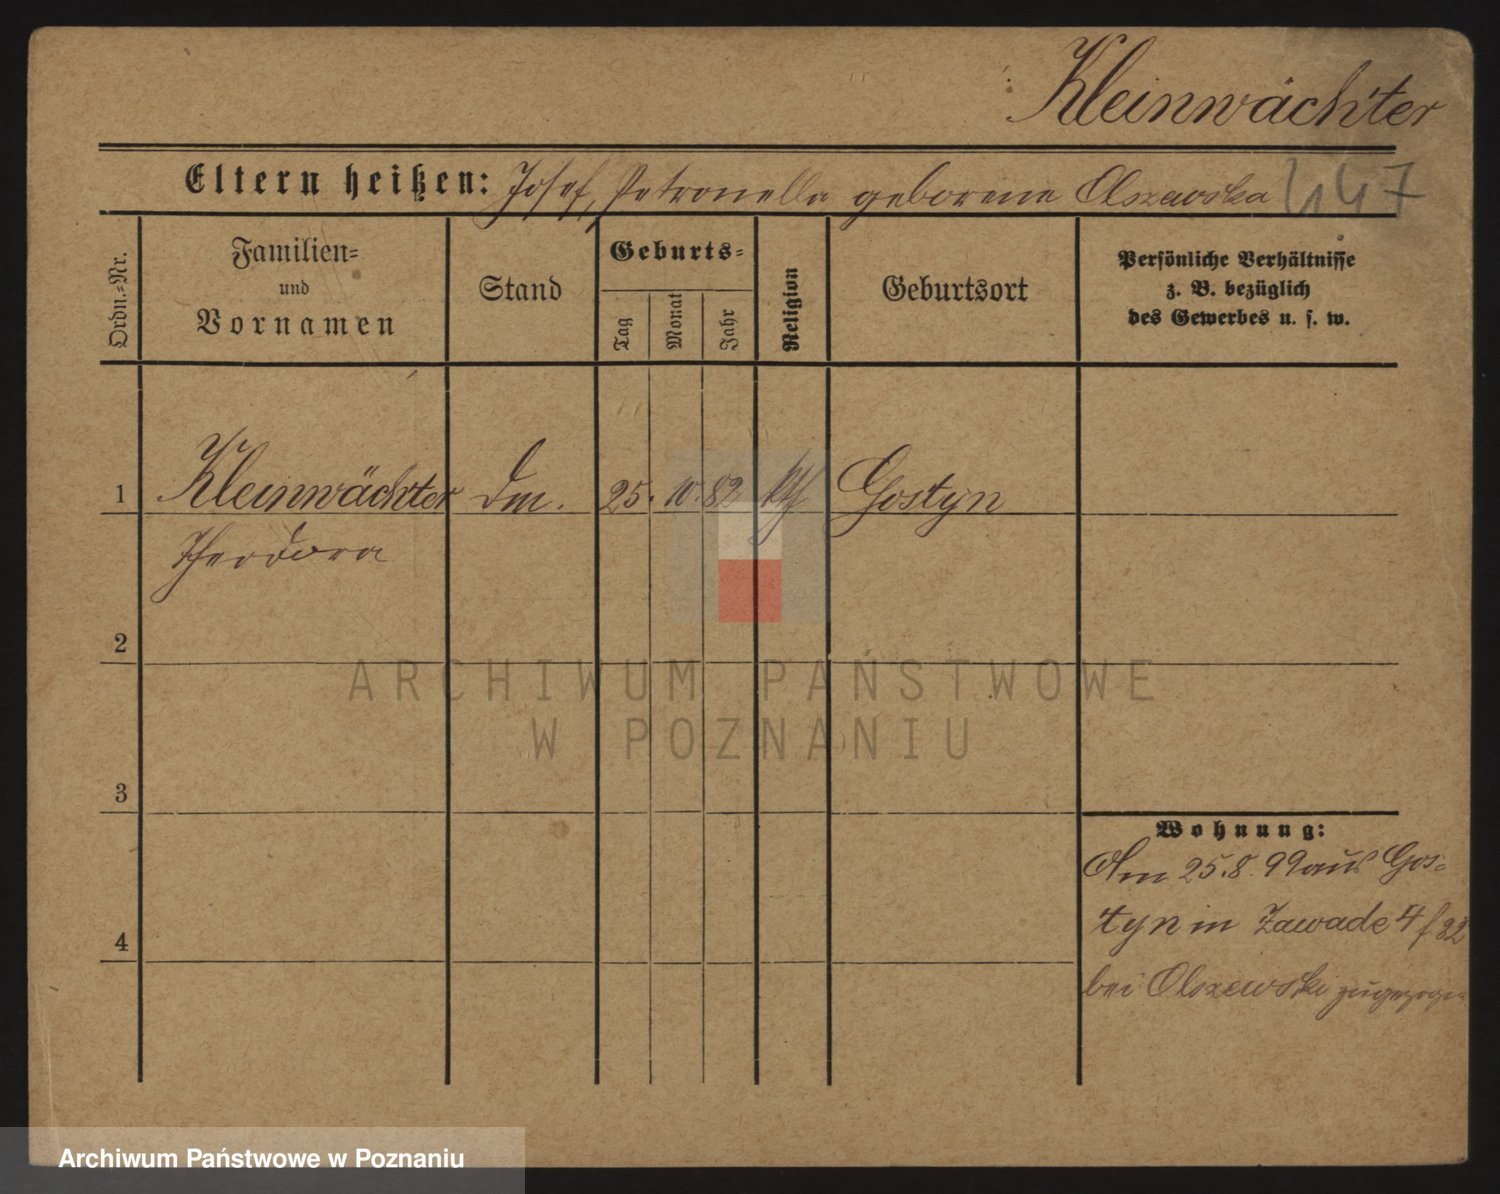 Kleinwächter
Eltern heißen: Josef, Petronella geborene Olszewska 447
Ordn.-Nr.
Familien-
und
Vornamen
Stand
Geburts-
Tag
Monat
Jahr
Religion
Geburtsort
Persönliche Verhältnisse
z. B. bezüglich
des Gewerbes u. s. w.
1 Kleinwächter 25. 10. 82 kth Gostyn
Theodora
2
3
4
Wohnung:
Am 25.8.99 aus Gos-
tyn in Zawade 4 f 32
bei Olszewski zugezogen
ARCHIWUM PAŃSTWOWE
W POZNANIU
Archiwum Państwowe w Poznaniu